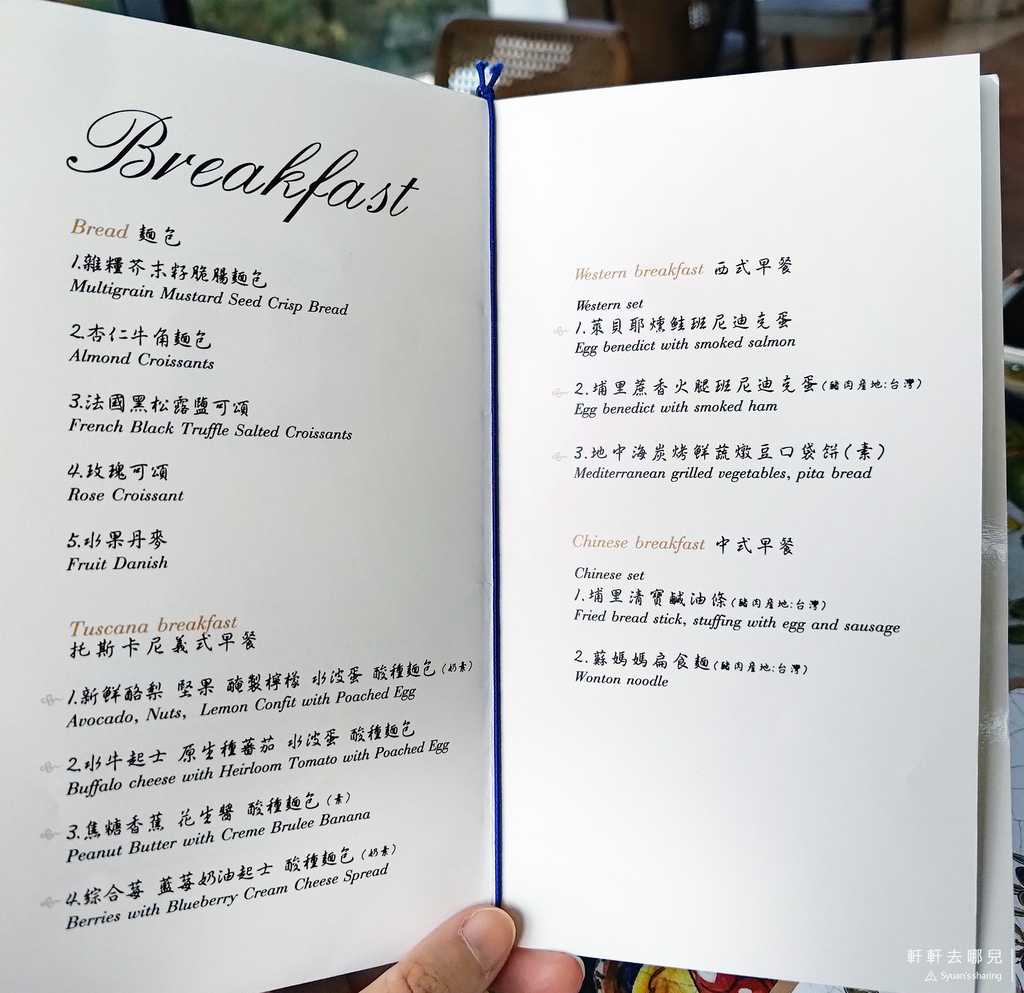 Breakfast
Bread 麵包
1.雜糧芥末籽脆腸麵包
Multigrain Mustard Seed Crisp Bread
2.杏仁牛角麵包
Almond Croissants
3.法國黑松露鹽可頌
French Black Truffle Salted Croissants
4.玫瑰可頌
Rose Croissant
5.水果丹麥
Fruit Danish
Tuscana breakfast
托斯卡尼義式早餐
1.新鮮酪梨 堅果 醃製檸檬 水波蛋 酸種麵包(奶素)
Avocado, Nuts, Lemon Confit with Poached Egg
2.水牛起士 原生種蕃茄 水波蛋 酸種麵包
Buffalo cheese with Heirloom Tomato with Poached Egg
3.焦糖香蕉 花生醬 酸種麵包(素)
Peanut Butter with Creme Brulee Banana
4.綜合莓 藍莓奶油起士 酸種麵包(奶素)
Berries with Blueberry Cream Cheese Spread
Western breakfast 西式早餐
Western set
1.萊貝耶燻鮭班尼迪克蛋
Egg benedict with smoked salmon
2.埔里蔗香火腿班尼迪克蛋(豬肉産地:台灣)
Egg benedict with smoked ham
3.地中海炭烤鮮蔬燉豆口袋餅(素)
Mediterranean grilled vegetables, pita bread
Chinese breakfast 中式早餐
Chinese set
1.埔里清寶鹹油條(豬肉産地:台灣)
Fried bread stick, stuffing with egg and sausage
2.蘇媽媽扁食麵(豬肉産地:台灣)
Wonton noodle
軒軒去哪兒
Syuan's sharing